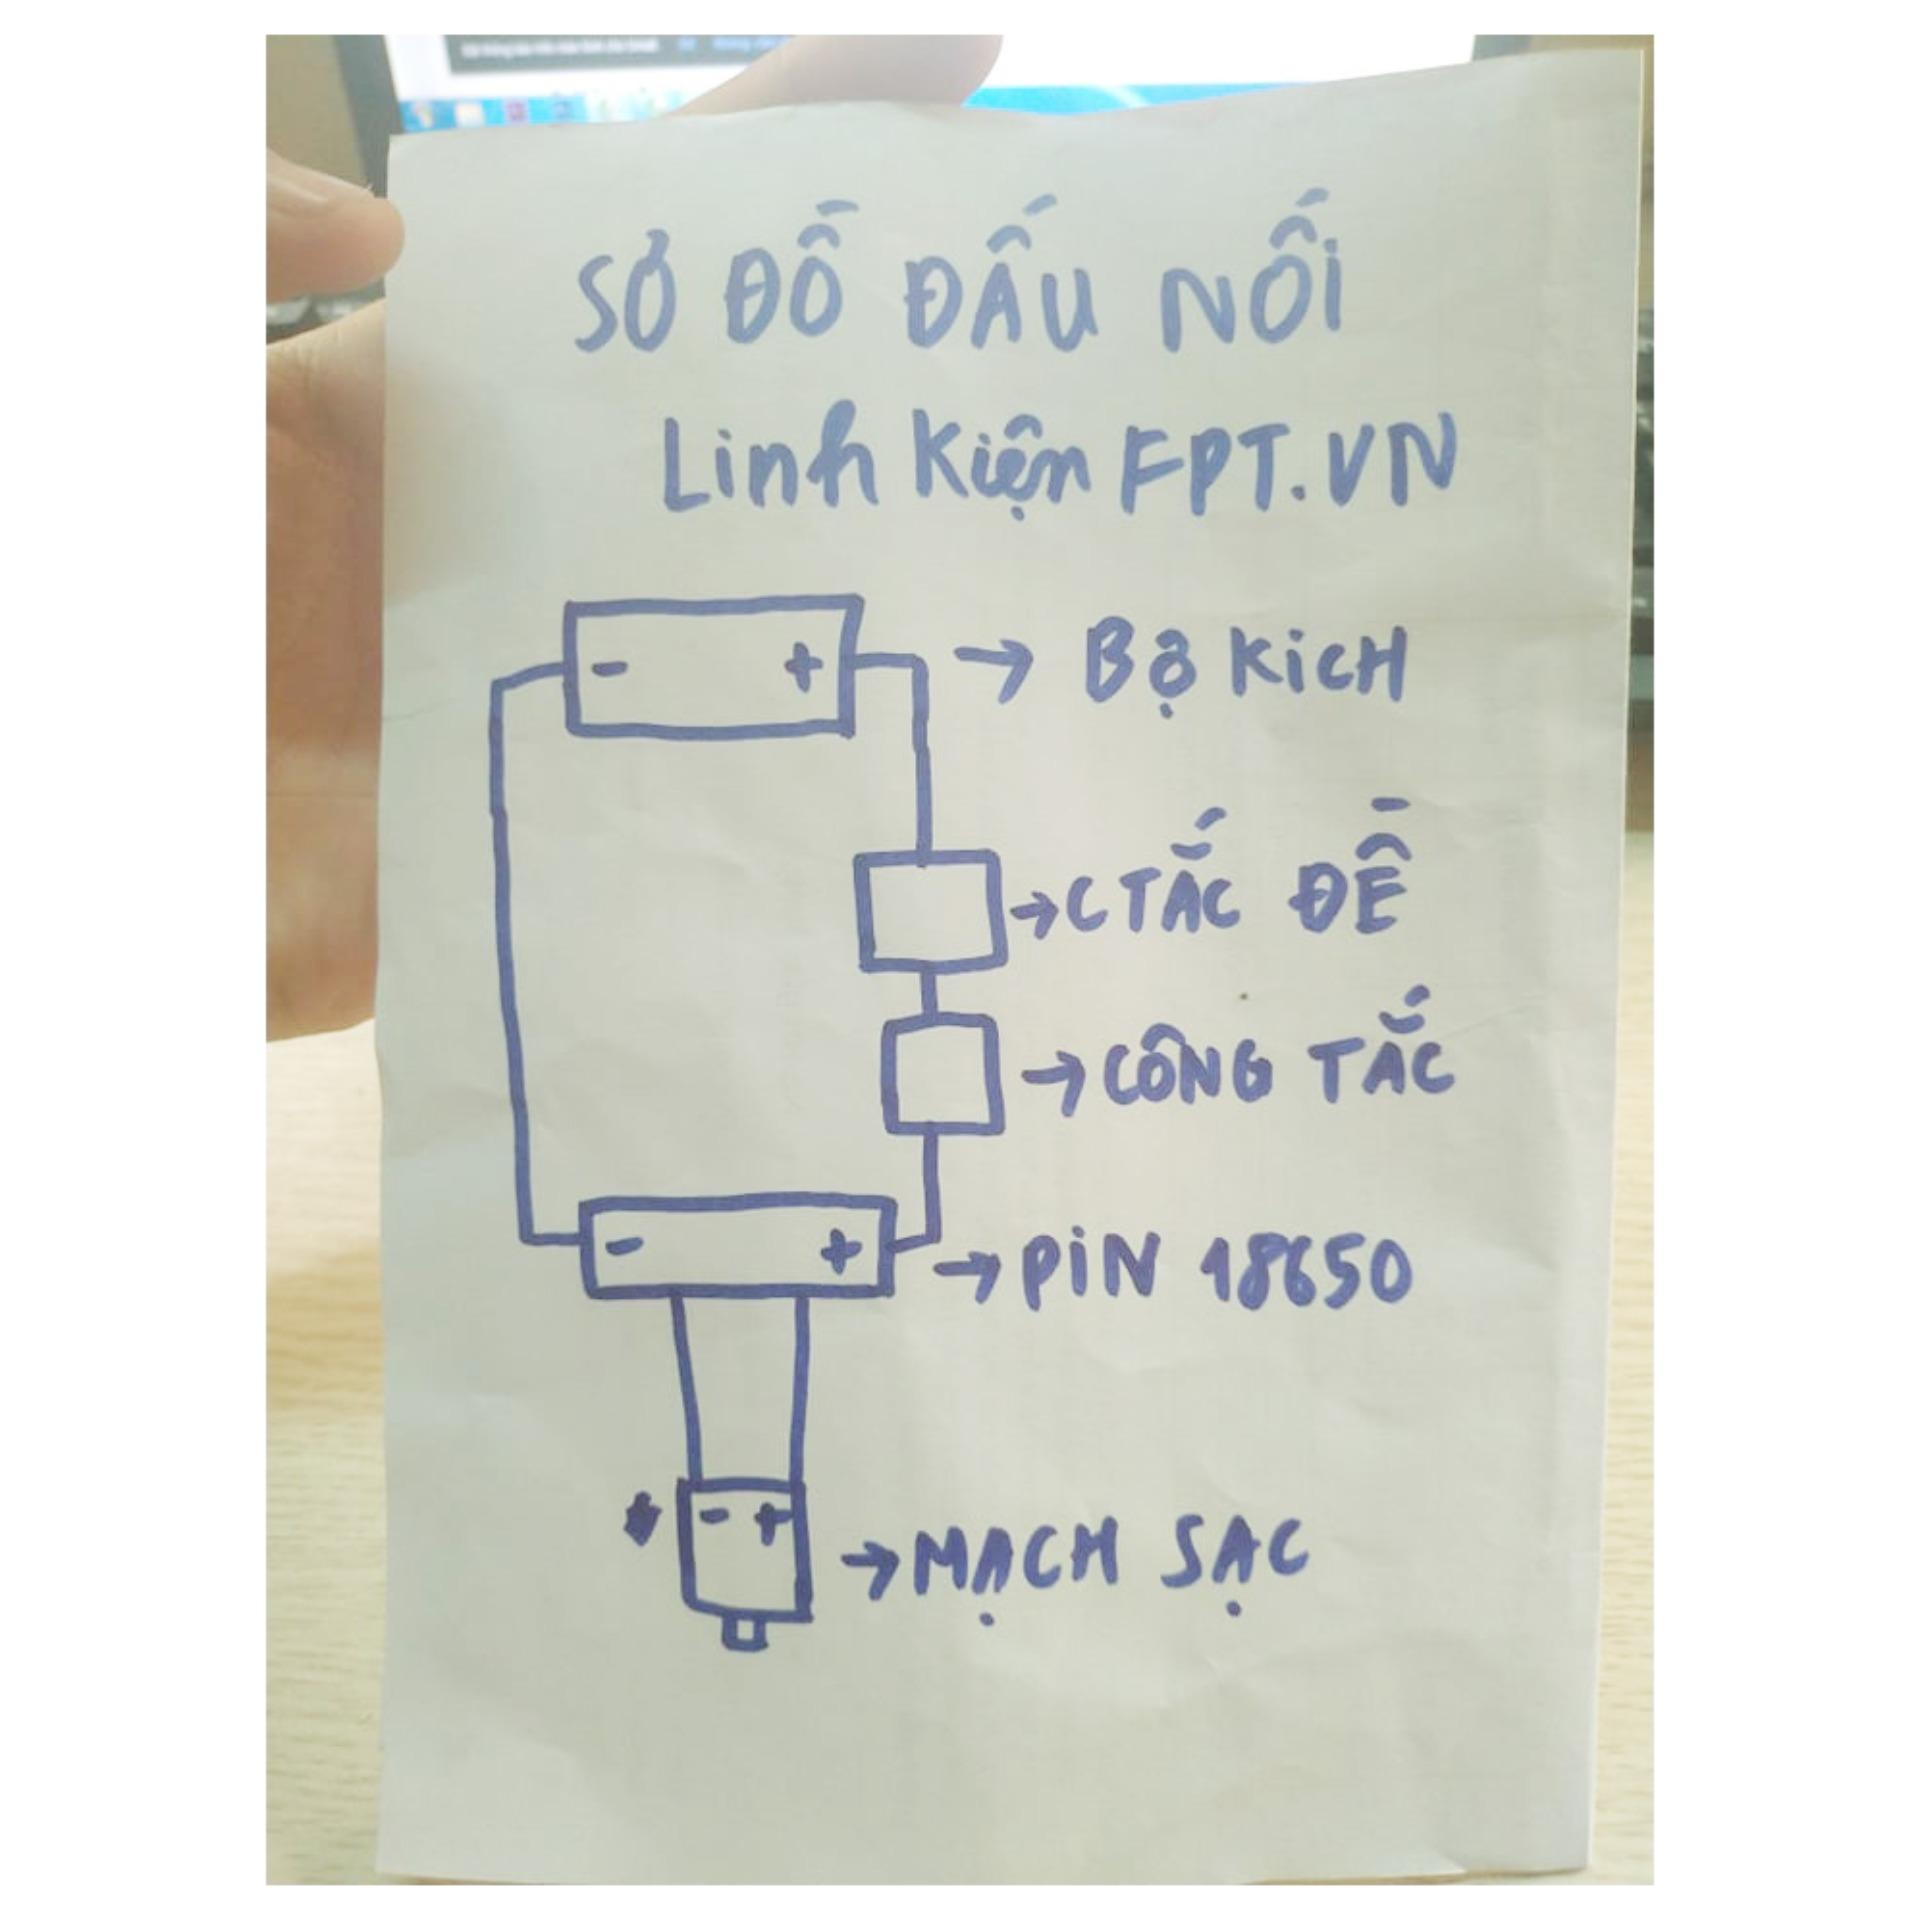 SƠ ĐỒ ĐẤU NỐI
Linh Kiện FPT.VN
- +
→ BỘ KICH
→ C TẮC ĐỀ
→ CÔNG TẮC
- +
→ PIN 18650
- +
→ MẠCH SẠC